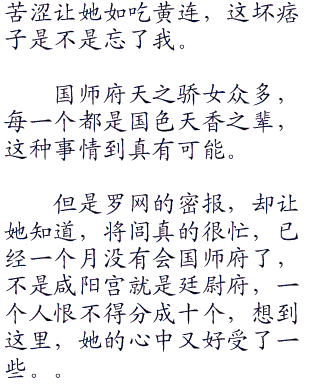 苦涩让她如吃黄连，这坏痞
子是不是忘了我。
国师府天之骄女众多，
每一个都是国色天香之辈，
这种事情到真有可能。
但是罗网的密报，却让
她知道，将闾真的很忙，已
经一个月没有会国师府了，
不是咸阳宫就是廷尉府，一
个人恨不得分成十个，想到
这里，她的心中又好受了一
些。。